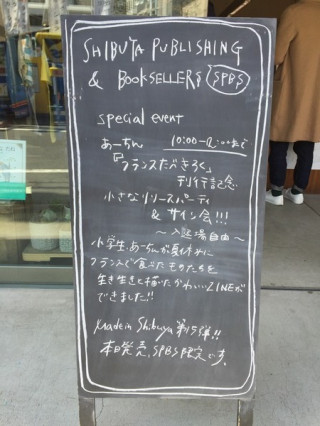 SHIBUYA PUBLISHING
& BOOKSELLERS SPBS
special event
あーちん 10:00-12:00まで
「フランスたびきろく」
刊行記念
小さなリリースパーティ
& サイン会!!!
〜入退場自由〜
小学生、あーちんが夏休みに
フランスで食べたものたちを
生き生きと描いたかわいいZINEが
できました!!
Made in Shibuya 第15弾!!
本日発売、SPBS限定です。